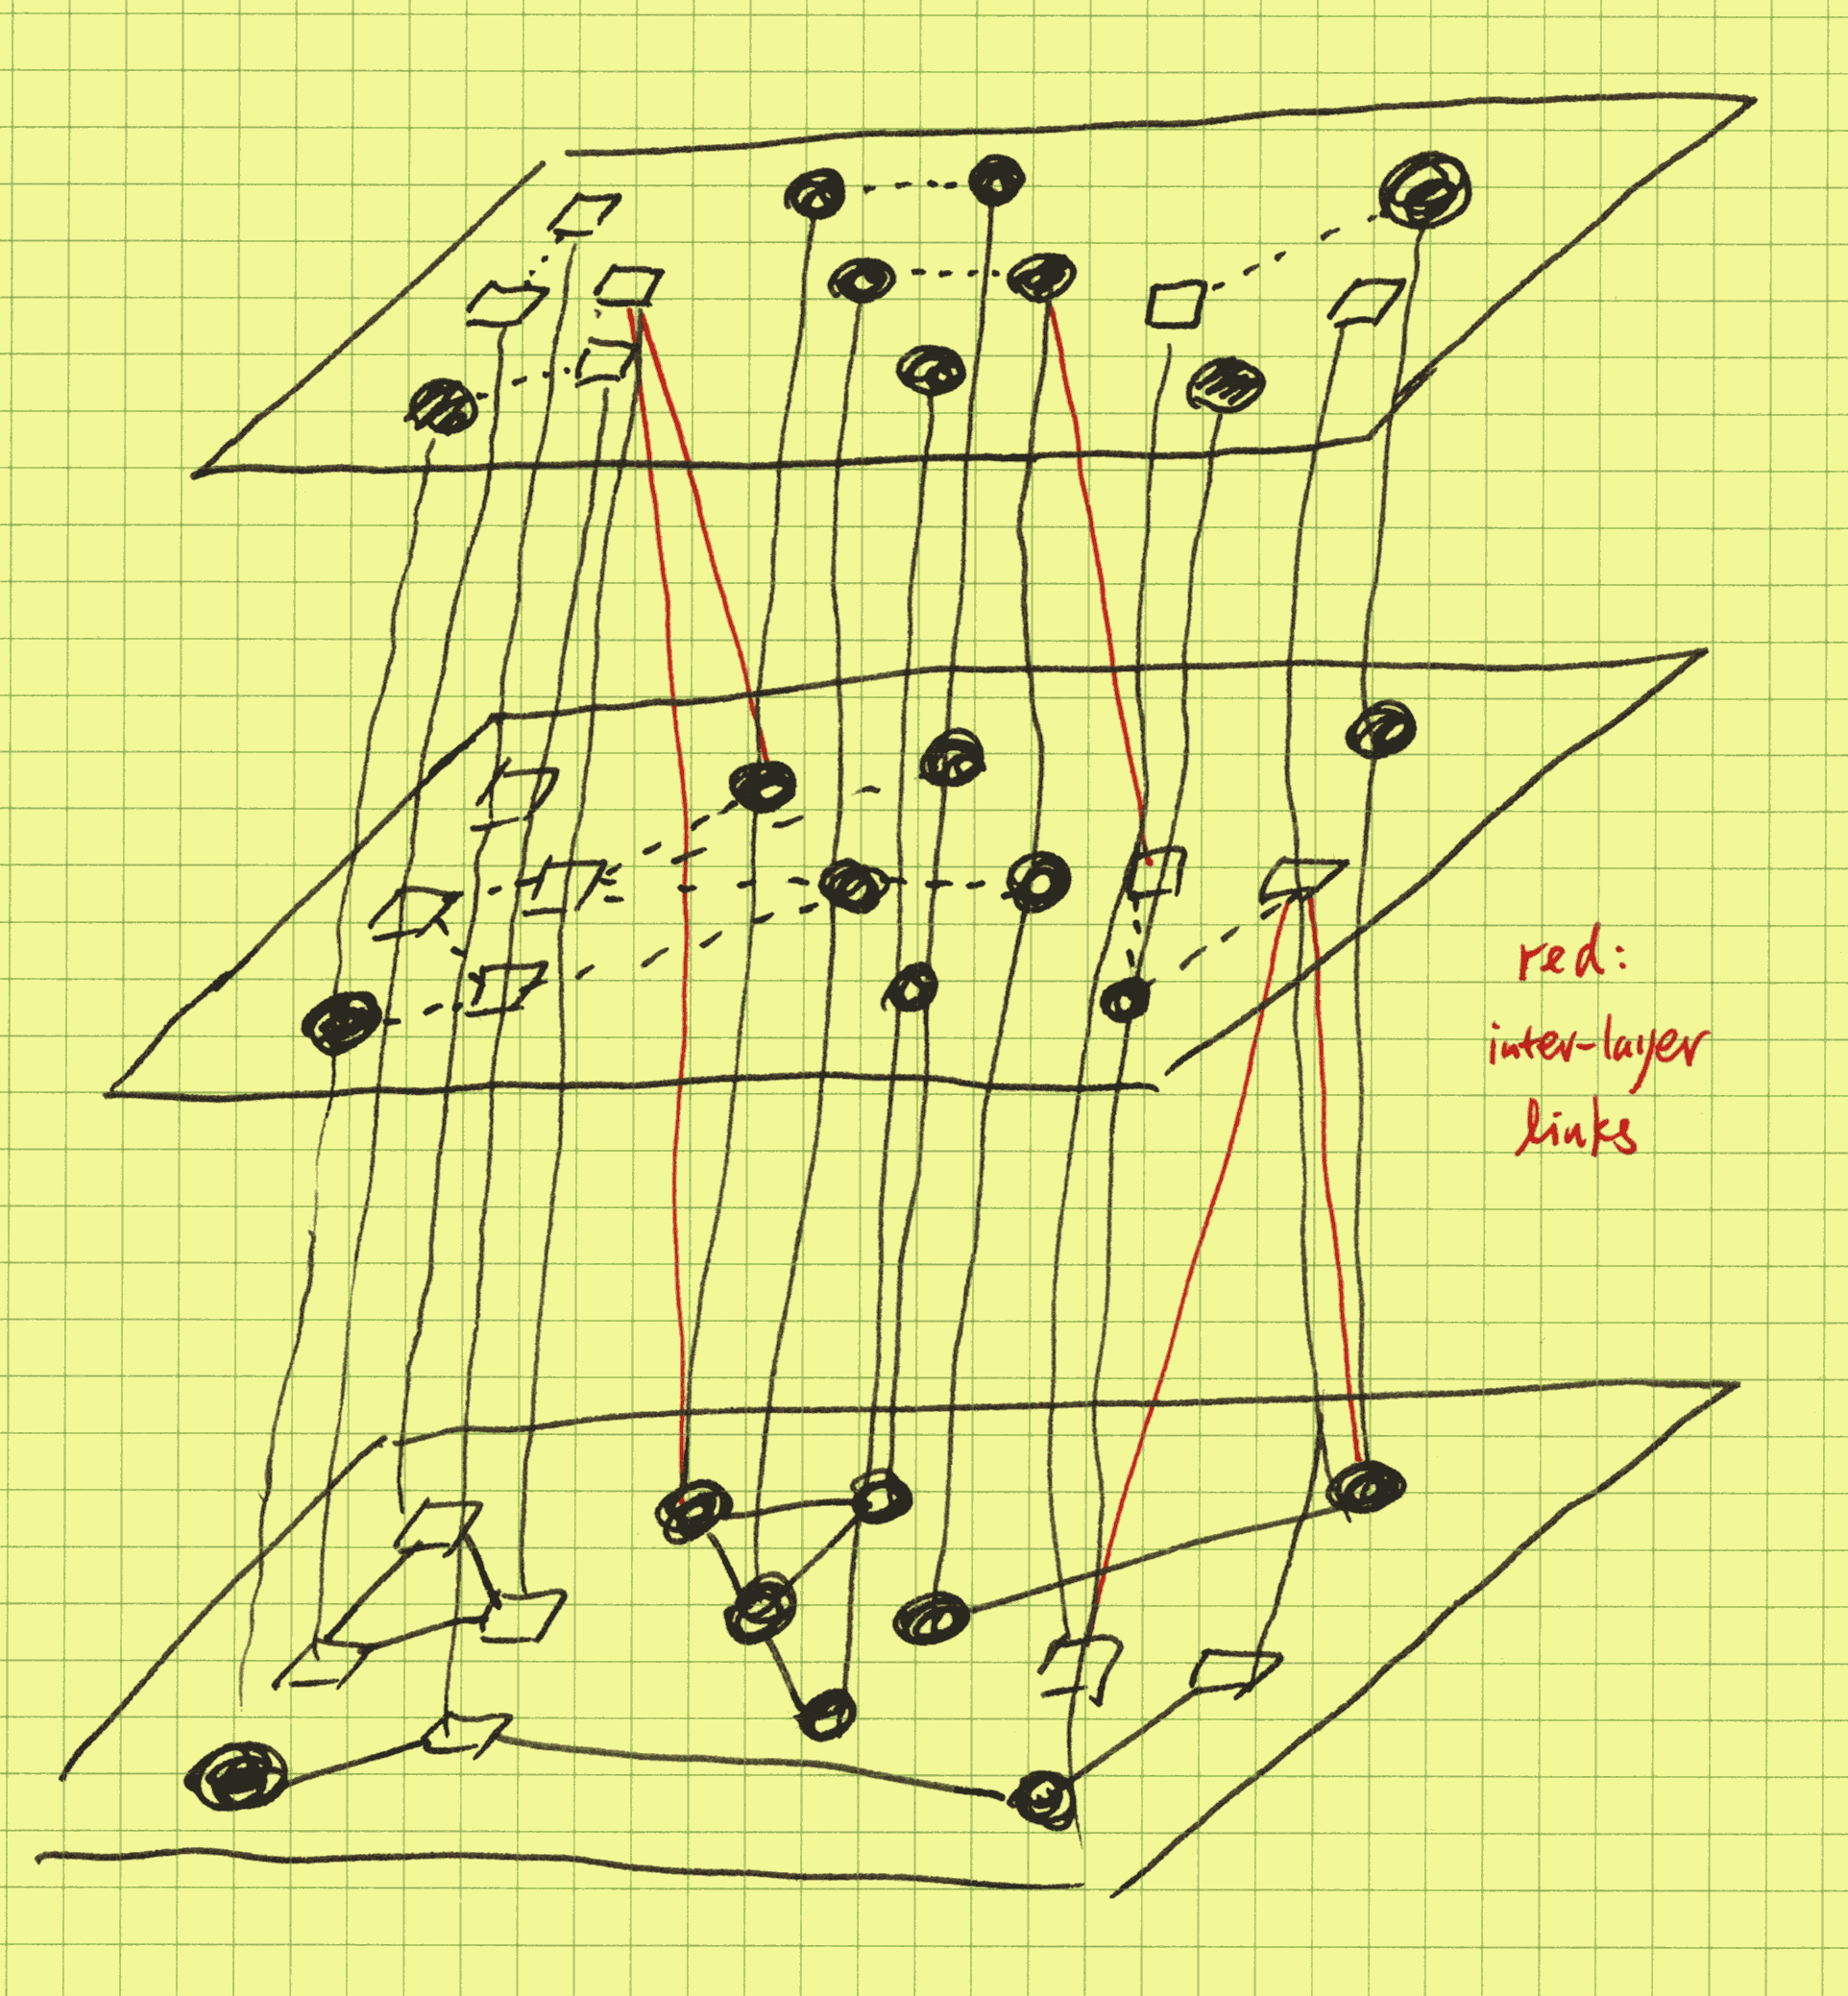 red:
inter-layer
links